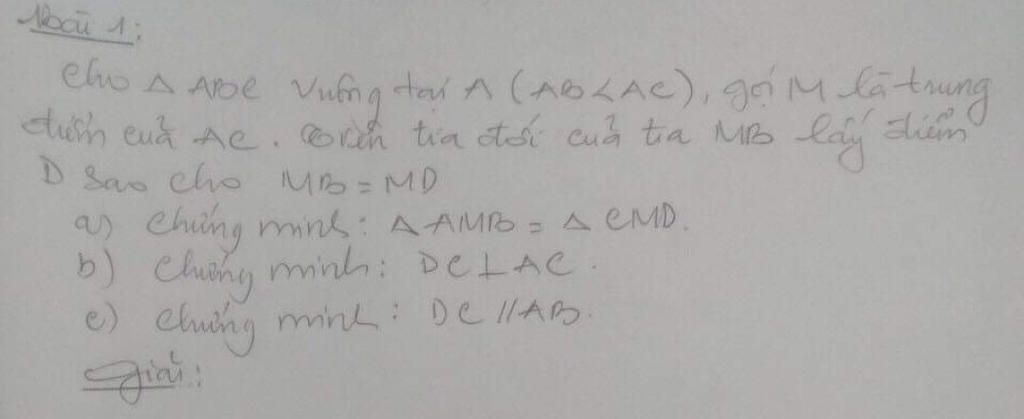 Bài 1:
Cho △ ABC vuông tại A (AB < AC), gọi M là trung
điểm của AC. Trên tia đối của tia MB lấy điểm
D sao cho MB = MD
a) Chứng minh: △ AMB = △ CMD.
b) Chứng minh: DC ⊥ AC.
c) Chứng minh: DC // AB.
Giải: